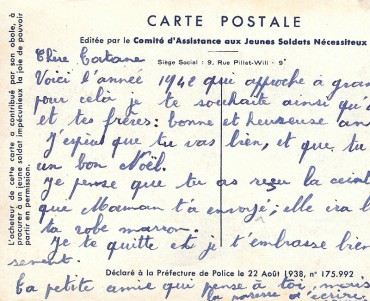 CARTE POSTALE
Editée par le Comité d'Assistance aux Jeunes Soldats Nécessiteux
Siège Social : 9, Rue Pillet-Will - 9e
L'acheteur de cette carte a contribué par son obole, à
procurer à un jeune soldat impécunieux la joie de pouvoir
partir en permission.
Chère Tatane
Voici l'année 1942 qui approche à gran
pour celà je te souhaite ainsi qu'à
et tes frères: bonne et heureuse an
J'espère que tu vas bien, et que tu
un bon Noël.
Je pense que tu as reçu la ceint
que Maman t'a envoyé; elle ira b
ta robe marron.
Je te quitte et je t'embrasse bien
sement.
Déclaré à la Préfecture de Police le 22 Août 1938, n° 175.992
Ta petite amie qui pense à toi, mais
la paresse d'écrire.